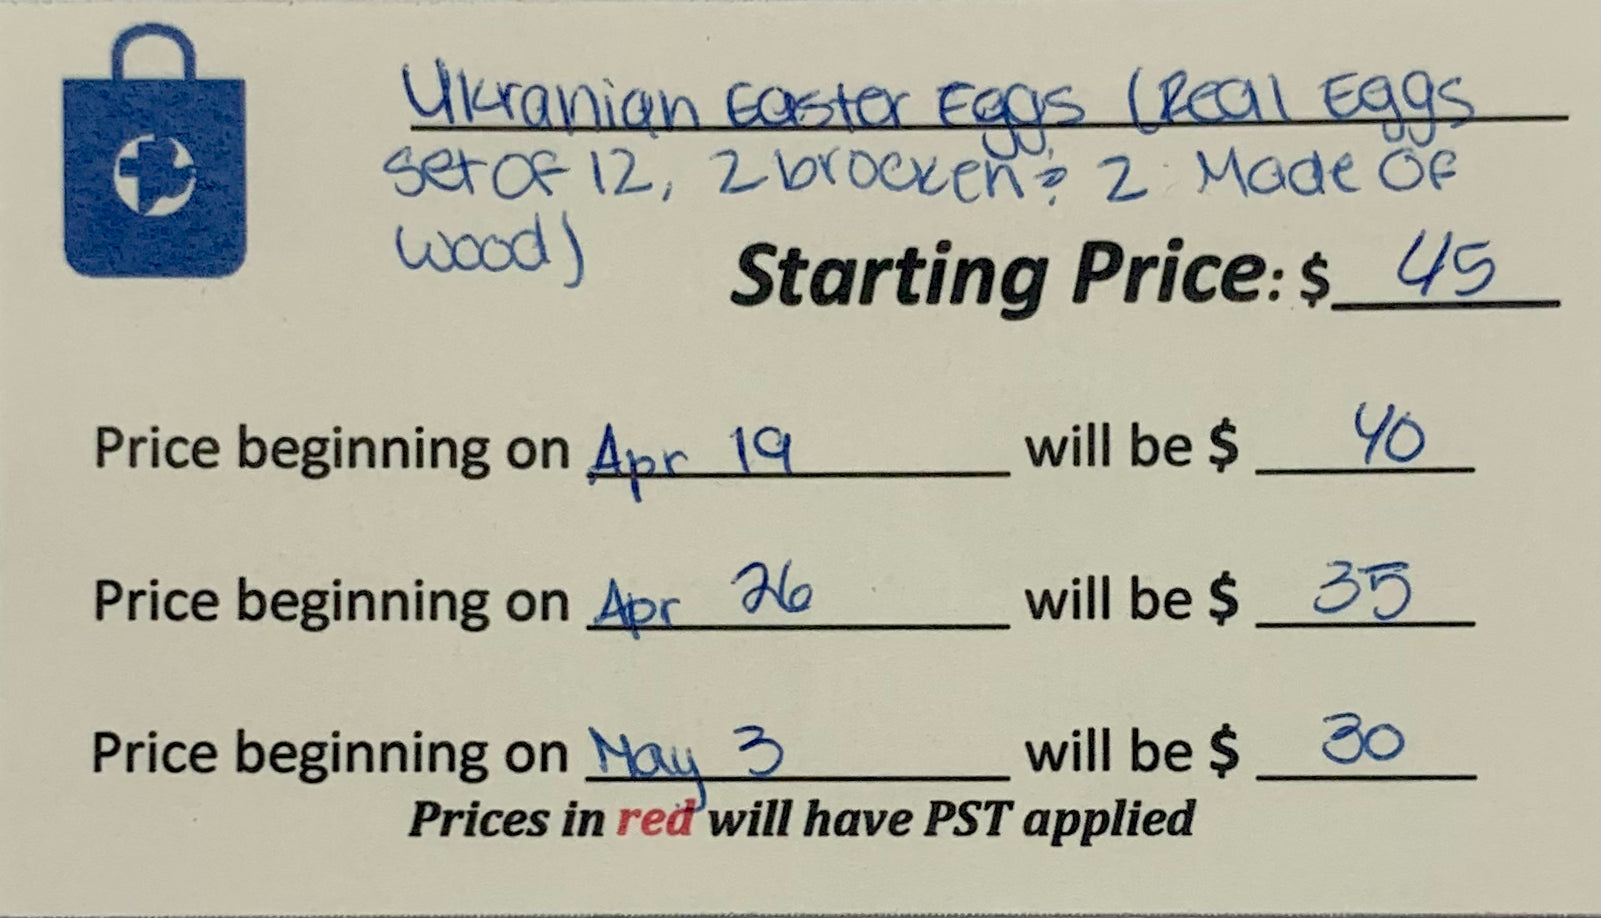 Ukranian Easter Eggs (Real Eggs
set of 12, 2 brocken & 2 Made Of
wood)
Starting Price: $ 45
Price beginning on Apr 19 will be $ 40
Price beginning on Apr 26 will be $ 35
Price beginning on May 3 will be $ 30
Prices in red will have PST applied